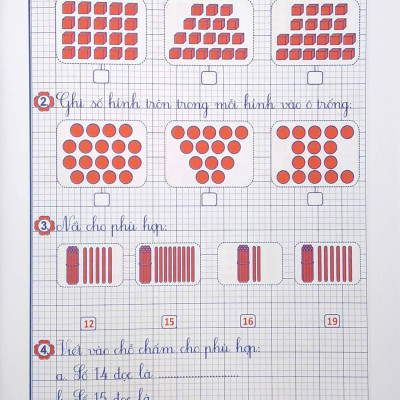 2. Ghi số hình tròn trong mỗi hình vào ô trống:
3. Nối cho phù hợp:
12 15 16 19
4. Viết vào chỗ chấm cho phù hợp:
a. Số 14 đọc là ........................
b. Số 15 đọc là